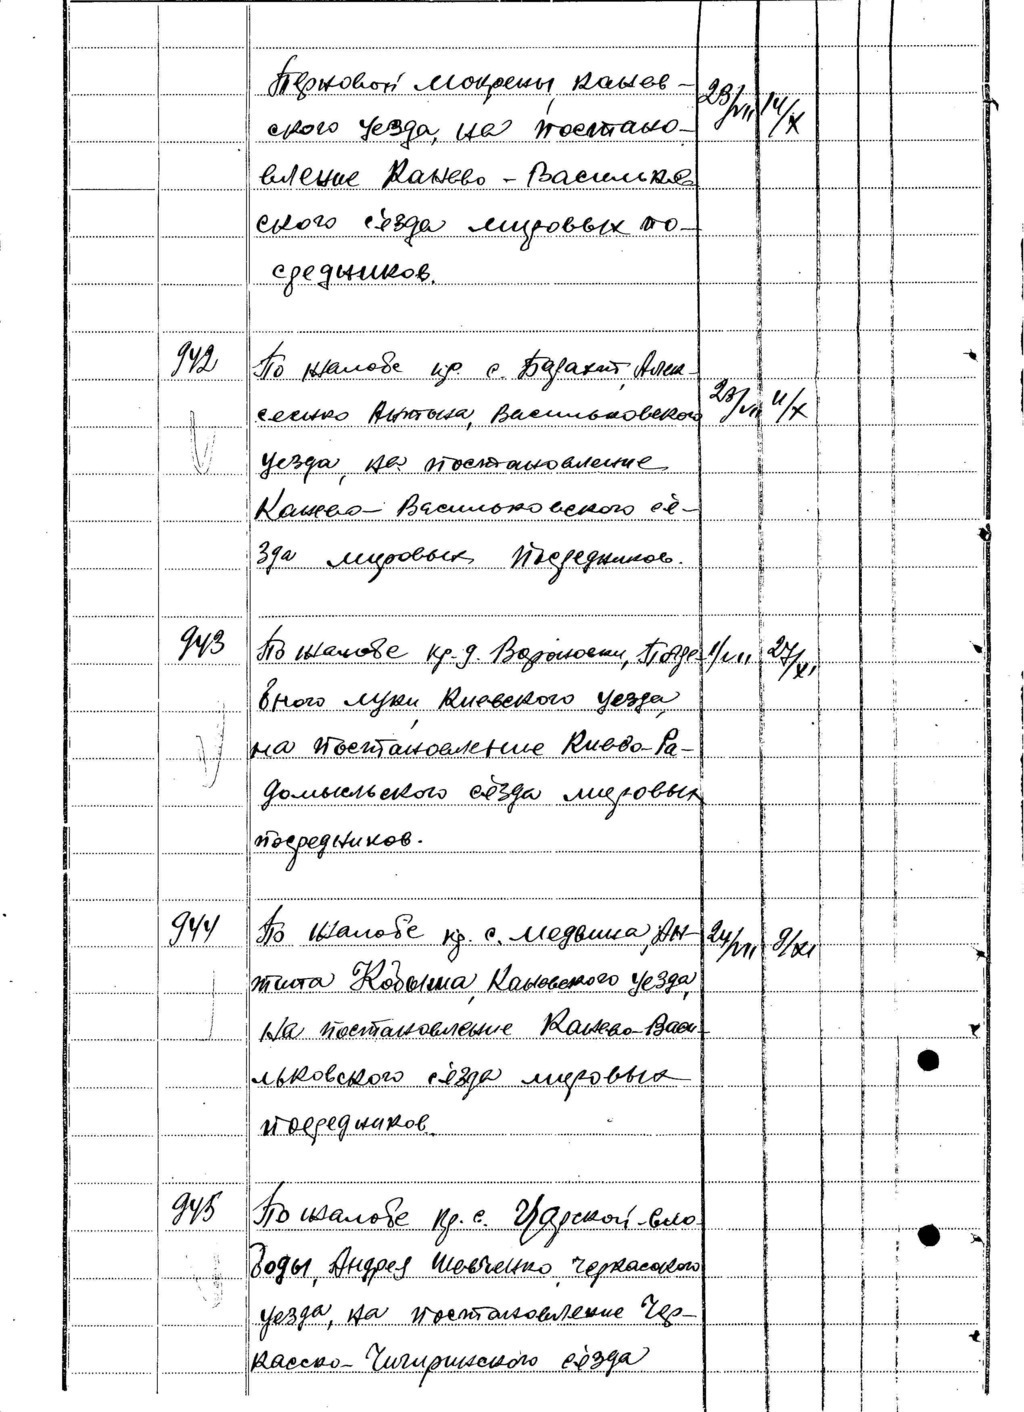 Терновой Мокрены, Канев- 23/VII 14/X
ского уезда, на постано-
вление Канево-Васильков
ского с'езда мировых по-
средников.
942 По жалобе кр. с. Барахт, Алек-
сеенко Антына, Васильковского 23/VII 11/X
уезда, на постановление
Канево-Васильковского с'е-
зда мировых посредников.
943 По жалобе кр. д. Вороновки, 1/VII 27/XI
вного Луки, Киевского уезда,
на постановление Киево-Ра-
домысльского с'езда мировых
посредников.
944 По жалобе кр. с. Медвина, Ан- 24/VII 9/XI
типа Кобыша, Каневского уезда,
на постановление Канево-Васи-
льковского с'езда мировых
посредников.
945 По жалобе кр. с. Царской-Сло-
боды, Андрея Шевченко, Черкасского
уезда, на постановление Чер-
касско-Чигиринского с'езда